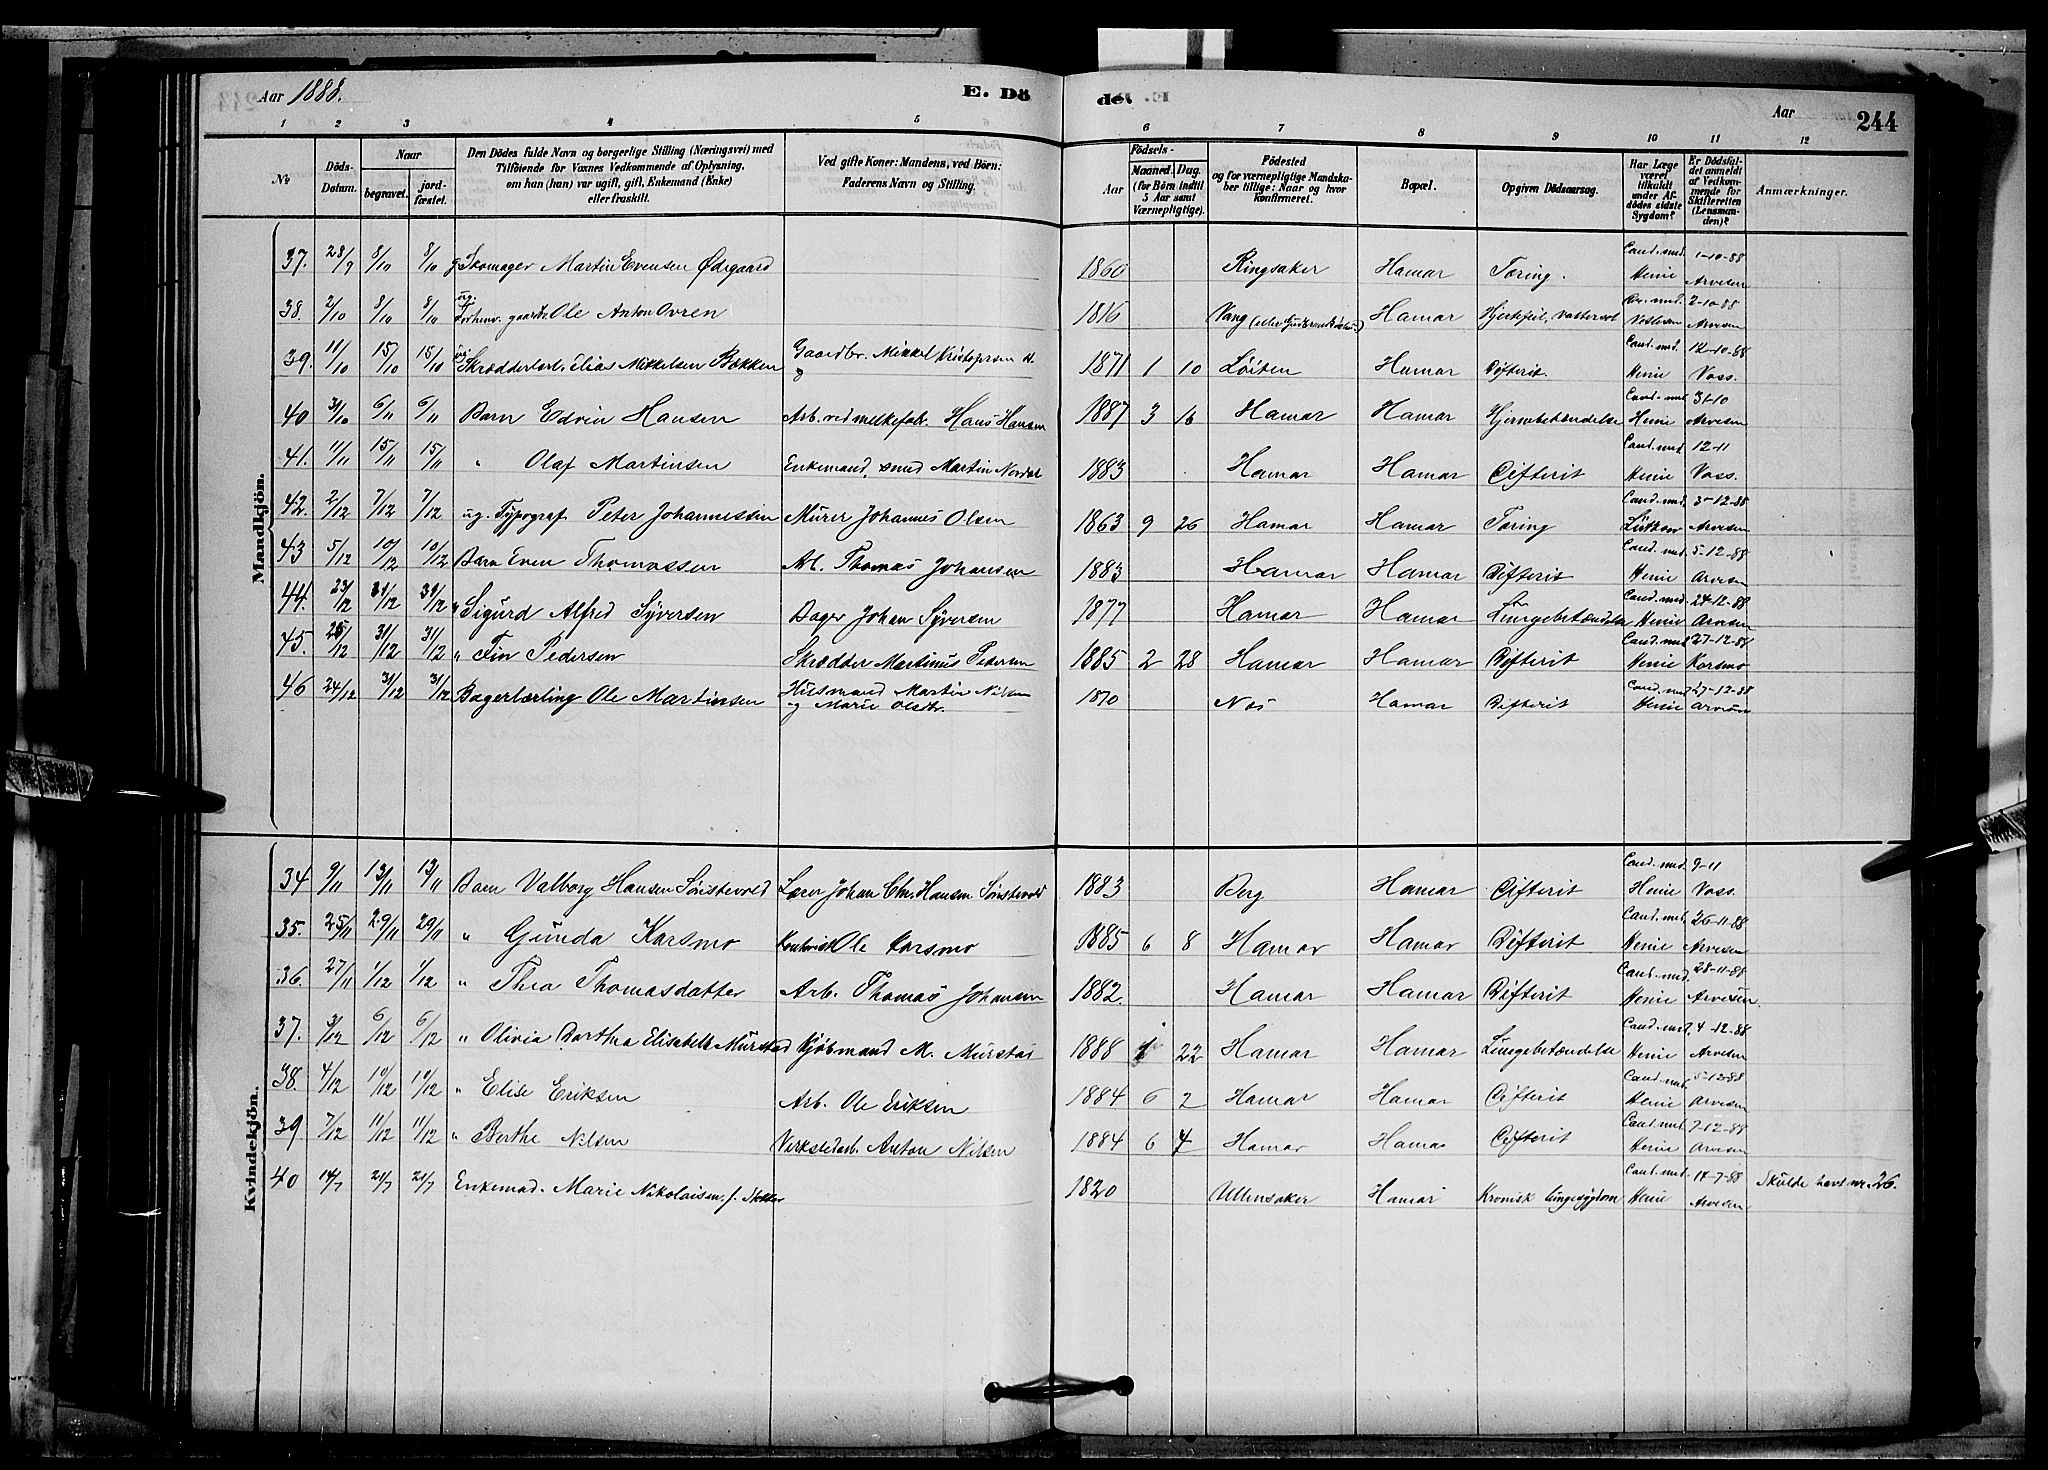 Aar 1888.
E. Dö
de.
Aar
244
1 2 3 4 5 6 7 8 9 10 11 12
№
Döds-Datum.
Naar
begravet.
jord-fæstet.
Den Dödes fulde Navn og borgerlige Stilling (Næringsvei) med
Tilföiende for Voxnes Vedkommende af Oplysning,
om han (hun) var ugift, gift, Enkemand (Enke)
eller fraskilt.
Ved gifte Koner: Mandens, ved Börn:
Faderens Navn og Stilling.
Födsels-
Aar
Maaned. Dag.
(for Börn indtil
5 Aar samt
Værnepligtige).
Födested
og for værnepligtige Mandska-
ber tillige: Naar og hvor
konfirmeret.
Bopæl.
Opgiven Dödsaarsag.
Har Læge
været
tilkaldt
under Af-
dödes sidste
Sygdom?
Er Dödsfal-
det anmeldt
af Vedkom-
mende for
Skifteretten
(Lensman-
den)?
Anmærkninger.
Mandkjön.
37. 28/9 8/10 8/10 g. Skomager Martin Evensen Ødegaard 1860 Ringsaker Hamar Tæring. Cand. med. Henie 1-10-88 Arvesen
38. 2/10 8/10 8/10 ug. Forhenv. gaardbr. Ole Anton Ovren 1816 Vang Hamar Hjertefeil, vattersot 2-10-88 Arvesen
39. 11/10 15/10 15/10 ug. Skrædderlærl. Elias Mikkelsen Bækken Gaardbr. Mikkel Kristofersen 1871 1 10 Löiten Hamar Difterit. Cand. med. Henie 12-10-88 Voss.
40 31/10 6/11 6/11 Barn Edvin Hansen Arb. ved melkefabr. Hans Hansen 1887 3 16 Hamar Hamar Hjernebetændelse Cand. med. Henie 31-10 Arvesen
41. 11/11 15/11 15/11 " Olaf Martinsen Enkemand, smed Martin 1883 Hamar Hamar Difterit Cand. med. Henie 12-11 Voss.
42. 2/12 7/12 7/12 ug. Typograf Peter Johannessen Murer Johannes Olsen 1863 9 26 Hamar Hamar Tæring Cand. med. Lützow 3-12-88 Arvesen
43 5/12 10/12 10/12 Barn Even Thomassen Arb. Thomas Johansen 1883 Hamar Hamar Difterit Cand. med. Henie 5-12-88 Arvesen
44. 23/12 31/12 31/12 " Sigurd Alfred Syversen Bager Johan Syversen 1877 Hamar Hamar Lungebetændelse Cand. med. Henie 24-12-88 Arvesen
45. 25/12 31/12 31/12 " Fin Pedersen Skrædder Martinus Pedersen 1885 2 28 Hamar Hamar Difterit Cand. med. Henie 27-12-88 Korsmo
46 24/12 31/12 31/12 Bagerlærling Ole Martinsen Husmand Martin Nilsen og Marie Olsdtr. 1870 Næs Hamar Difterit Cand. med. Henie 27-12-88 Arvesen
Kvindekjön.
34 9/11 13/11 13/11 Barn Valborg Hansen Sönstevold Lærer Johan Chr. Hansen Sönstevold 1883 Berg Hamar Difterit Cand. med. Henie 9-11 Voss.
35. 25/11 29/11 29/11 " Gunda Korsmo Ole Korsmo 1885 6 8 Hamar Hamar Difterit Cand. med. Henie 26-11-88 Arvesen
36. 27/11 1/12 1/12 " Thea Thomasdatter Arb. Thomas Johansen 1882 Hamar Hamar Difterit Cand. med. Henie 28-11-88 Arvesen
37. 3/12 6/12 6/12 " Olivia Barthea Elisabeth Murstad Kjöbmand M. Murstad 1888 1 22 Hamar Hamar Lungebetændelse Cand. med. Henie 4-12-88 Arvesen
38. 4/12 10/12 10/12 " Elise Eriksen Arb. Ole Eriksen 1884 6 2 Hamar Hamar Difterit Cand. med. Henie 5-12-88 Arvesen
39. 7/12 11/12 11/12 " Berthe Nilsen Verkstedarb. Anton Nilsen 1884 6 4 Hamar Hamar Difterit Cand. med. Henie 7-12-88 Arvesen
40 14/7 21/7 21/7 Enkemad. Marie Nikolaisen, f. 1820 Ullensaker Hamar Kronisk lungesygdom Cand. med. Henie 17-7-88 Arvesen Skulde havt nr. 26.